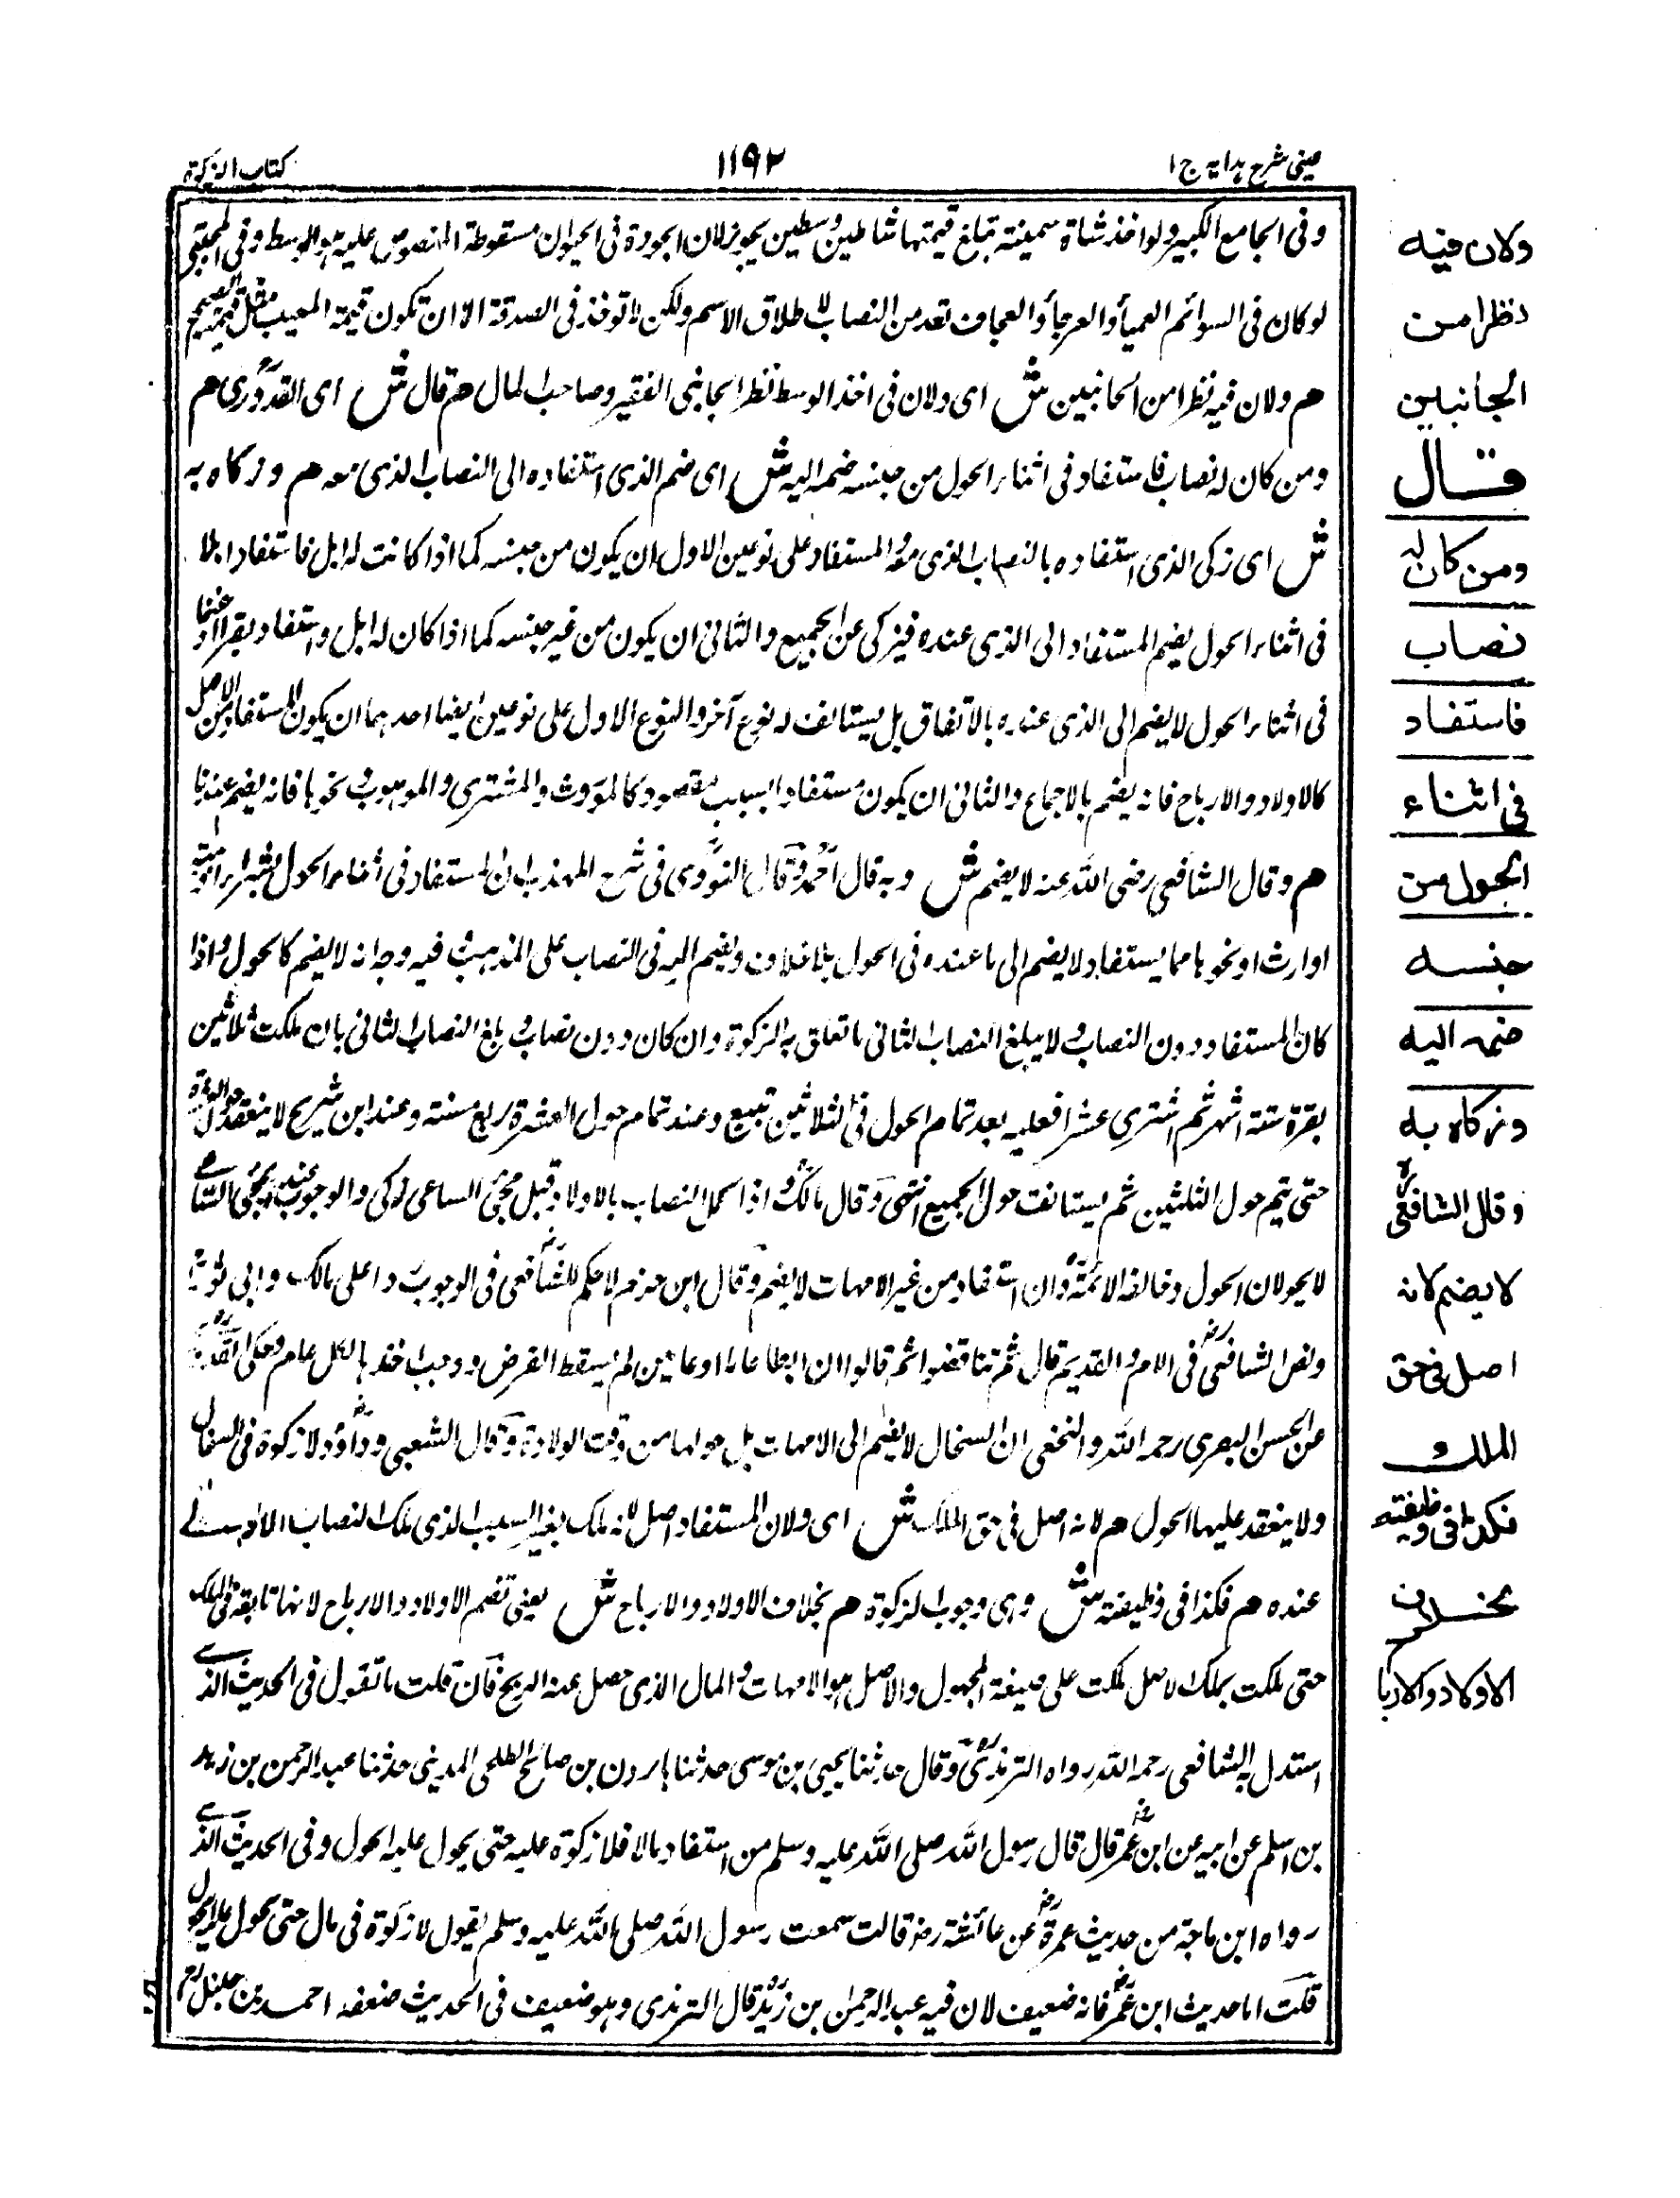 عینی شرح ہدایہ ج ا
۱۱۹۲
کتاب الزکوة
وفی الجامع الکبیر ولو اخذ شاة سمینة تبلغ قیمتها شاتین وسطین یجوز لان الجودة فی الحیوان مسقوطة المنصوص علیه هو الوسط وفی المجتبی
لو کان فی السوائم العمیاء والعرجاء والعجاف تعد من النصاب لاطلاق الاسم ولکن لا توخذ فی الصدقة الا ان تکون قیمة المعیب مثل قیمة الصحیح
هم ولان فیه نظرا من الجانبین ش ای ولان فی اخذ الوسط نظرا لجانبی الفقیر وصاحب المال هم قال ش ای القدوری هم
ومن کان له نصاب فاستفاد فی اثناء الحول من جنسه ضمه الیه ش ای ضم الذی استفاده الی النصاب الذی معه هم وزکاه به
ش ای زکی الذی استفاده بالنصاب الذی معه والمستفاد علی نوعین الاول ان یکون من جنسه کما اذا کانت له ابل فاستفاد ابلا
فی اثناء الحول یضم المستفاد الی الذی عنده فیزکی عن الجمیع والثانی ان یکون من غیر جنسه کما اذا کان له ابل واستفاد بقرا او غنما
فی اثناء الحول لا یضم الی الذی عنده بالاتفاق بل یستانف له نوع آخر والنوع الاول علی نوعین ایضا احدهما ان یکون المستفاد من الاصل
کالاولاد والارباح فانه یضم بالاجماع والثانی ان یکون مستفادا بسبب مقصود کالموروث والمشتری والموهوب ونحوها فانه یضم عندنا
هم وقال الشافعی رضی الله عنه لا یضم ش وبه قال احمد وقال النووی فی شرح المهذب ان المستفاد فی اثناء الحول بشراء او هبة
او ارث او نحوها مما یستفاد لا یضم الی ما عنده فی الحول بلا خلاف ویضم الیه فی النصاب علی المذهب وفیه وجه انه لا یضم کالحول واذا
کان المستفاد دون النصاب ولا یبلغ النصاب الثانی ما تعلق به الزکوة وان کان دون نصاب وبلغ النصاب الثانی بان ملکت ثلاثین
بقرة ستة اشهر ثم اشتری عشرا فعلیه بعد تمام الحول فی الثلاثین تبیع وعند تمام حول العشرة ربع مسنة وعند ابن شریح لا ینعقد
حتی یتم حول الثلثین ثم یستانف حول الجمیع انتهی وقال مالک اذا کمل النصاب بالاولاد قبل مجئ الساعی زکی والوجوب عنده بمجئ الساعے
لا یحولان الحول وخالفه الائمة وان استفاد من غیر الامهات لا یضم وقال ابن حزم لا حکم للشافعی فی الوجوب دا علی مالک وابی ثور
ونص الشافعی فی الام والقدیم قال ثم تناقضوا ثم قالوا ان ابطأ عاما او عامین لم یسقط الفرض ووجب اخذها لکل عام وحکی
عن الحسن البصری رحمه الله والنخعی ان السخال لا یضم الی الامهات بل حولها من وقت الولادة وقال الشعبی وداؤد لا زکوة فی السخال
ولا ینعقد علیها الحول هم لانه اصل فی حق الملک ش ای ولان المستفاد اصل لانه ملک بغیر السبب الذی ملک النصاب
عنده هم فکذا فی وظیفته ش وهی وجوب الزکوة هم بخلاف الاولاد والارباح ش یعنی تضم الاولاد والارباح لانها تابعة فی الملک
حتی ملکت بملک الاصل ملکت علی صیغة المجهول والاصل هو الامهات والمال الذی حصل عنه الربح فان قلت ما تقول فی الحدیث الذے
استدل به الشافعی رحمه الله رواه الترمذی وقال حدثنا یحیی بن موسی حدثنا هارون بن صالح الطلحی المدینی حدثنا عبد الرحمن بن زید
بن اسلم عن ابیه عن ابن عمر قال قال رسول الله صلی الله علیه وسلم من استفاد مالا فلا زکوة علیه حتی یحول علیه الحول وفی الحدیث الذے
رواه ابن ماجة من حدیث عمرة عن عائشة رض قالت سمعت رسول الله صلی الله علیه وسلم یقول لا زکوة فی مال حتی یحول علیه الحول
قلت اما حدیث ابن عمر فانه ضعیف لان فیه عبد الرحمن بن زید قال الترمذی وهو ضعیف فی الحدیث ضعفه احمد بن حنبل
ولان فیه
نظرا من
الجانبین
قال
ومن کان له
نصاب
فاستفاد
فی اثناء
الحول من
جنسه
ضمه الیه
وزکاه به
وقال الشافعی
لا یضم لانه
اصل فی حق
الملک و
فکذا فی وظیفته
بخلاف
الاولاد والاربا